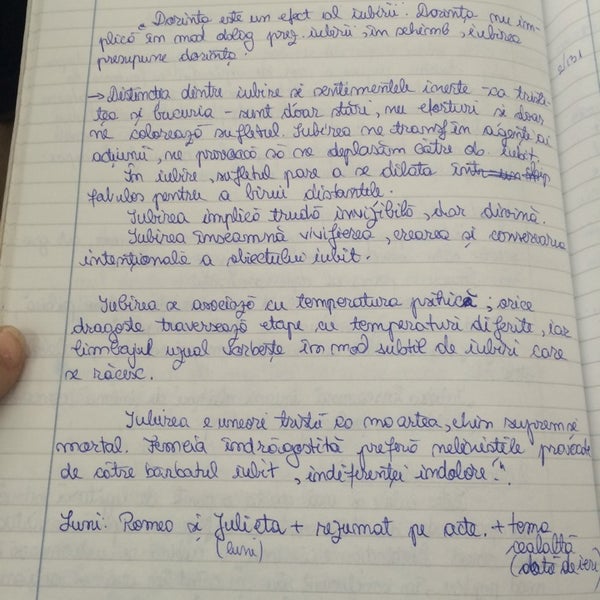 " Dorința este un efect al iubirii. Dorința nu im-
plică în mod oblig prez. iubirii, în schimb, iubirea
presupune dorința.
→ Distincția dintre iubire și sentimentele inerte - ca triste-
țea și bucuria - sunt doar stări, nu eforturi și doar
ne colorează sufletul. Iubirea ne transf în agenți ai
acțiunii, ne provoacă să ne deplasăm către ob. iubit.
În iubire, sufletul pare a se dilata
fabulos pentru a birui distanțele.
Iubirea implică trudă invizibilă, dar divină.
Iubirea înseamnă vivificarea, crearea și conservarea
intențională a obiectului iubit.
Iubirea se asociază cu temperatura psihică; orice
dragoste traversează etape cu temperaturi diferite, iar
limbajul uzual vorbește în mod subtil de iubiri care
se răcesc.
Iubirea e uneori tristă ca moartea, chin suprem și
mortal. Femeia îndrăgostită preferă neliniștile provocate
de către barbatul iubit, indiferenței indolore."
Luni: Romeo și Julieta + rezumat pe acte. + tema
(luni) cealaltă
(dată de ieri